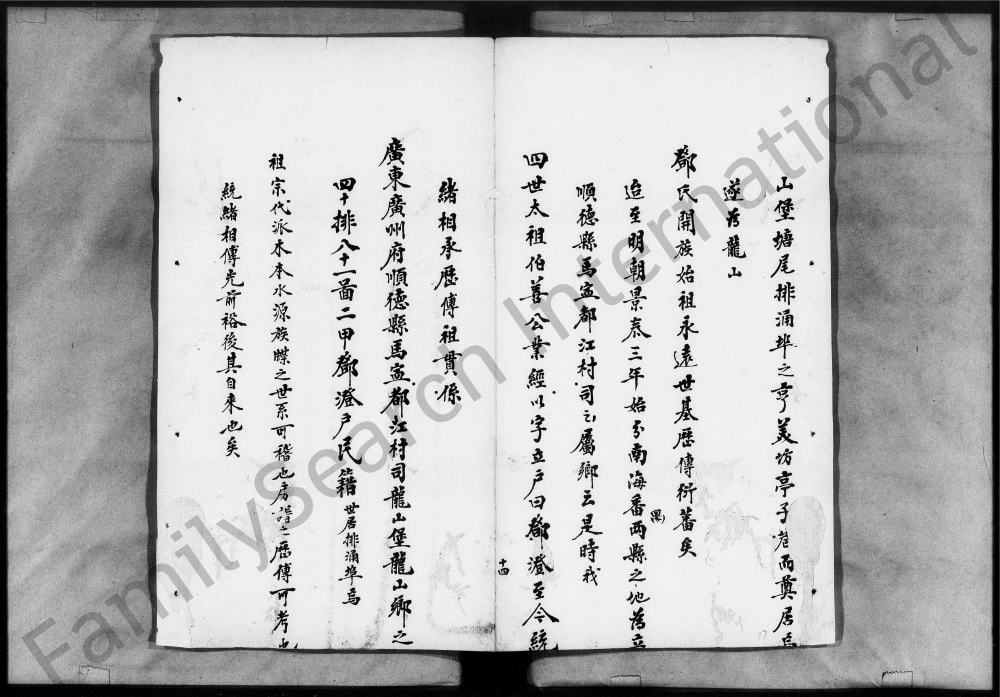 山堡塘尾排涌埠之亨美坊亭子巷而奠居焉
遂為龍山
鄧氏開族始祖永遠世基歷傳衍蕃矣
迨至明朝景泰三年始分南海番禺兩縣之地為立
順德縣馬寍都江村司之屬鄉云是時我
四世太祖伯善公業經以字立戶曰鄧澄至今統
十四
緒相承歷傳祖貫係
廣東廣州府順德縣馬寍都江村司龍山堡龍山鄉之
四十排八十一啚二甲鄧澄戶民籍 世居排涌埠焉
祖宗代派木本水源族牒之世系可稽也房譜之歷傳可考也
統緒相傳光前裕後其自來也矣
17
FamilySearch International